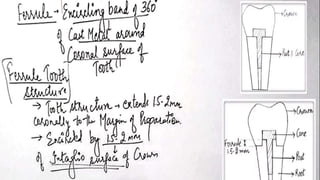 Ferrule → Encircling band of 360°
of Cast Metal around
Coronal surface of
Tooth
Ferrule Tooth
Structure
→ Tooth structure → extends 1.5-2mm
coronally to the Margin of Preparation
→ Encircled by 1.5-2mm
of Intaglio surface of Crown
Crown
Post & Core
Crown
Core
Ferrule
1.5-2mm
Post
Root